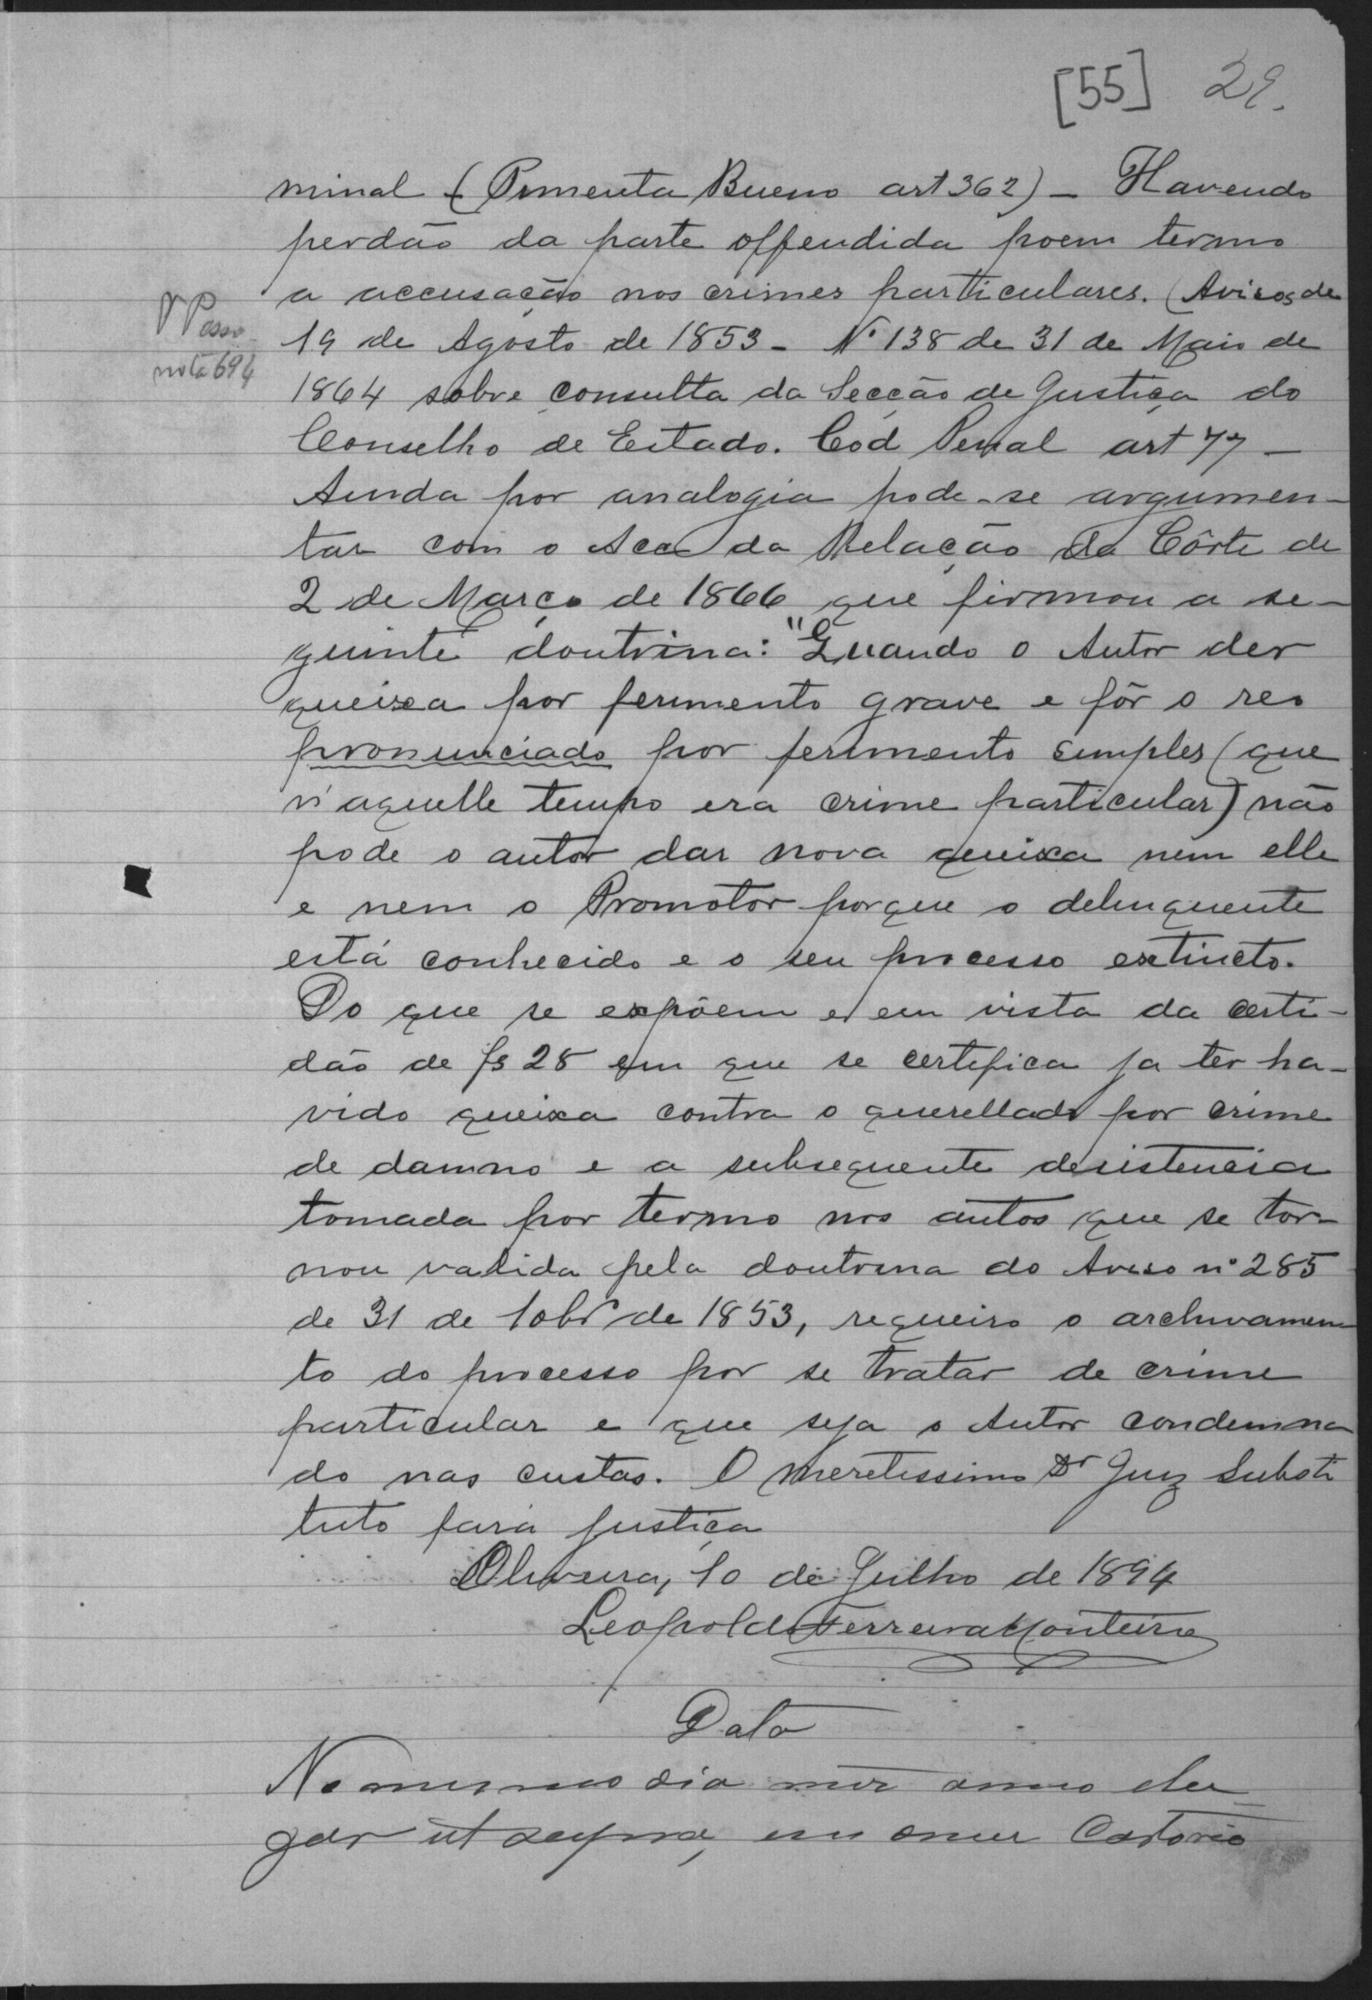 [55] 29.
minal (Pimenta Bueno art 362) – Havendo
perdão da parte offendida poem termo
a accusação nos crimes particulares. (Avisos de
19 de Agosto de 1853 – Nº 138 de 31 de Maio de
nota 694
1864 sobre consulta da Secção de Justiça do
Conselho de Estado. Cod Penal art 77 –
Ainda por analogia pode-se argumen-
tar com o Acc da Relação da Côrte de
2 de Março de 1866 que firmou a se-
guinte doutrina: "Quando o Autor der
queixa por ferimento grave e fôr o reo
pronunciado por ferimento simples (que
n'aquelle tempo era crime particular) não
pode o autor dar nova queixa nem elle
e nem o Promotor porque o delinquente
está conhecido e o seu processo extincto.
Do que se expõem e em vista da certi-
dão de fs 28 em que se certifica ja ter ha-
vido queixa contra o querellado por crime
de damno e a subsequente desistencia
tomada por termo nos autos que se tor-
nou valida pela doutrina do Aviso nº 285
de 31 de 10brº de 1853, requeiro o archivamen-
to do processo por se tratar de crime
particular e que seja o Autor condemna
do nas custas. O meretissimo Dr Juiz Substi
tuto fará justiça
Oliveira, 10 de Julho de 1894
Leopoldo Ferreira Monteiro
Data
No mesmo dia mez anno e lu
gar ut supra, em o meu Cartorio